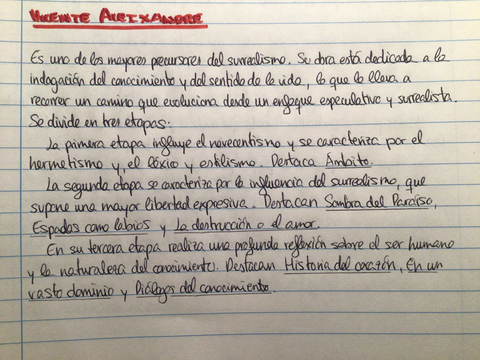 VICENTE ALEIXANDRE
Es uno de los mayores precursores del surrealismo. Su obra está dedicada a la
indagación del conocimiento y del sentido de la vida, lo que lo lleva a
recorrer un camino que evoluciona desde un enfoque especulativo y surrealista.
Se divide en tres etapas:
La primera etapa influye el novecentismo y se caracteriza por el
hermetismo y, el léxico y estilismo. Destaca Ámbito.
La segunda etapa se caracteriza por la influencia del surrealismo, que
supone una mayor libertad expresiva. Destacan Sombra del Paraíso,
Espadas como labios y La destrucción o el amor.
En su tercera etapa realiza una profunda reflexión sobre el ser humano
y la naturaleza del conocimiento. Destacan Historia del corazón, En un
vasto dominio y Diálogos del conocimiento.